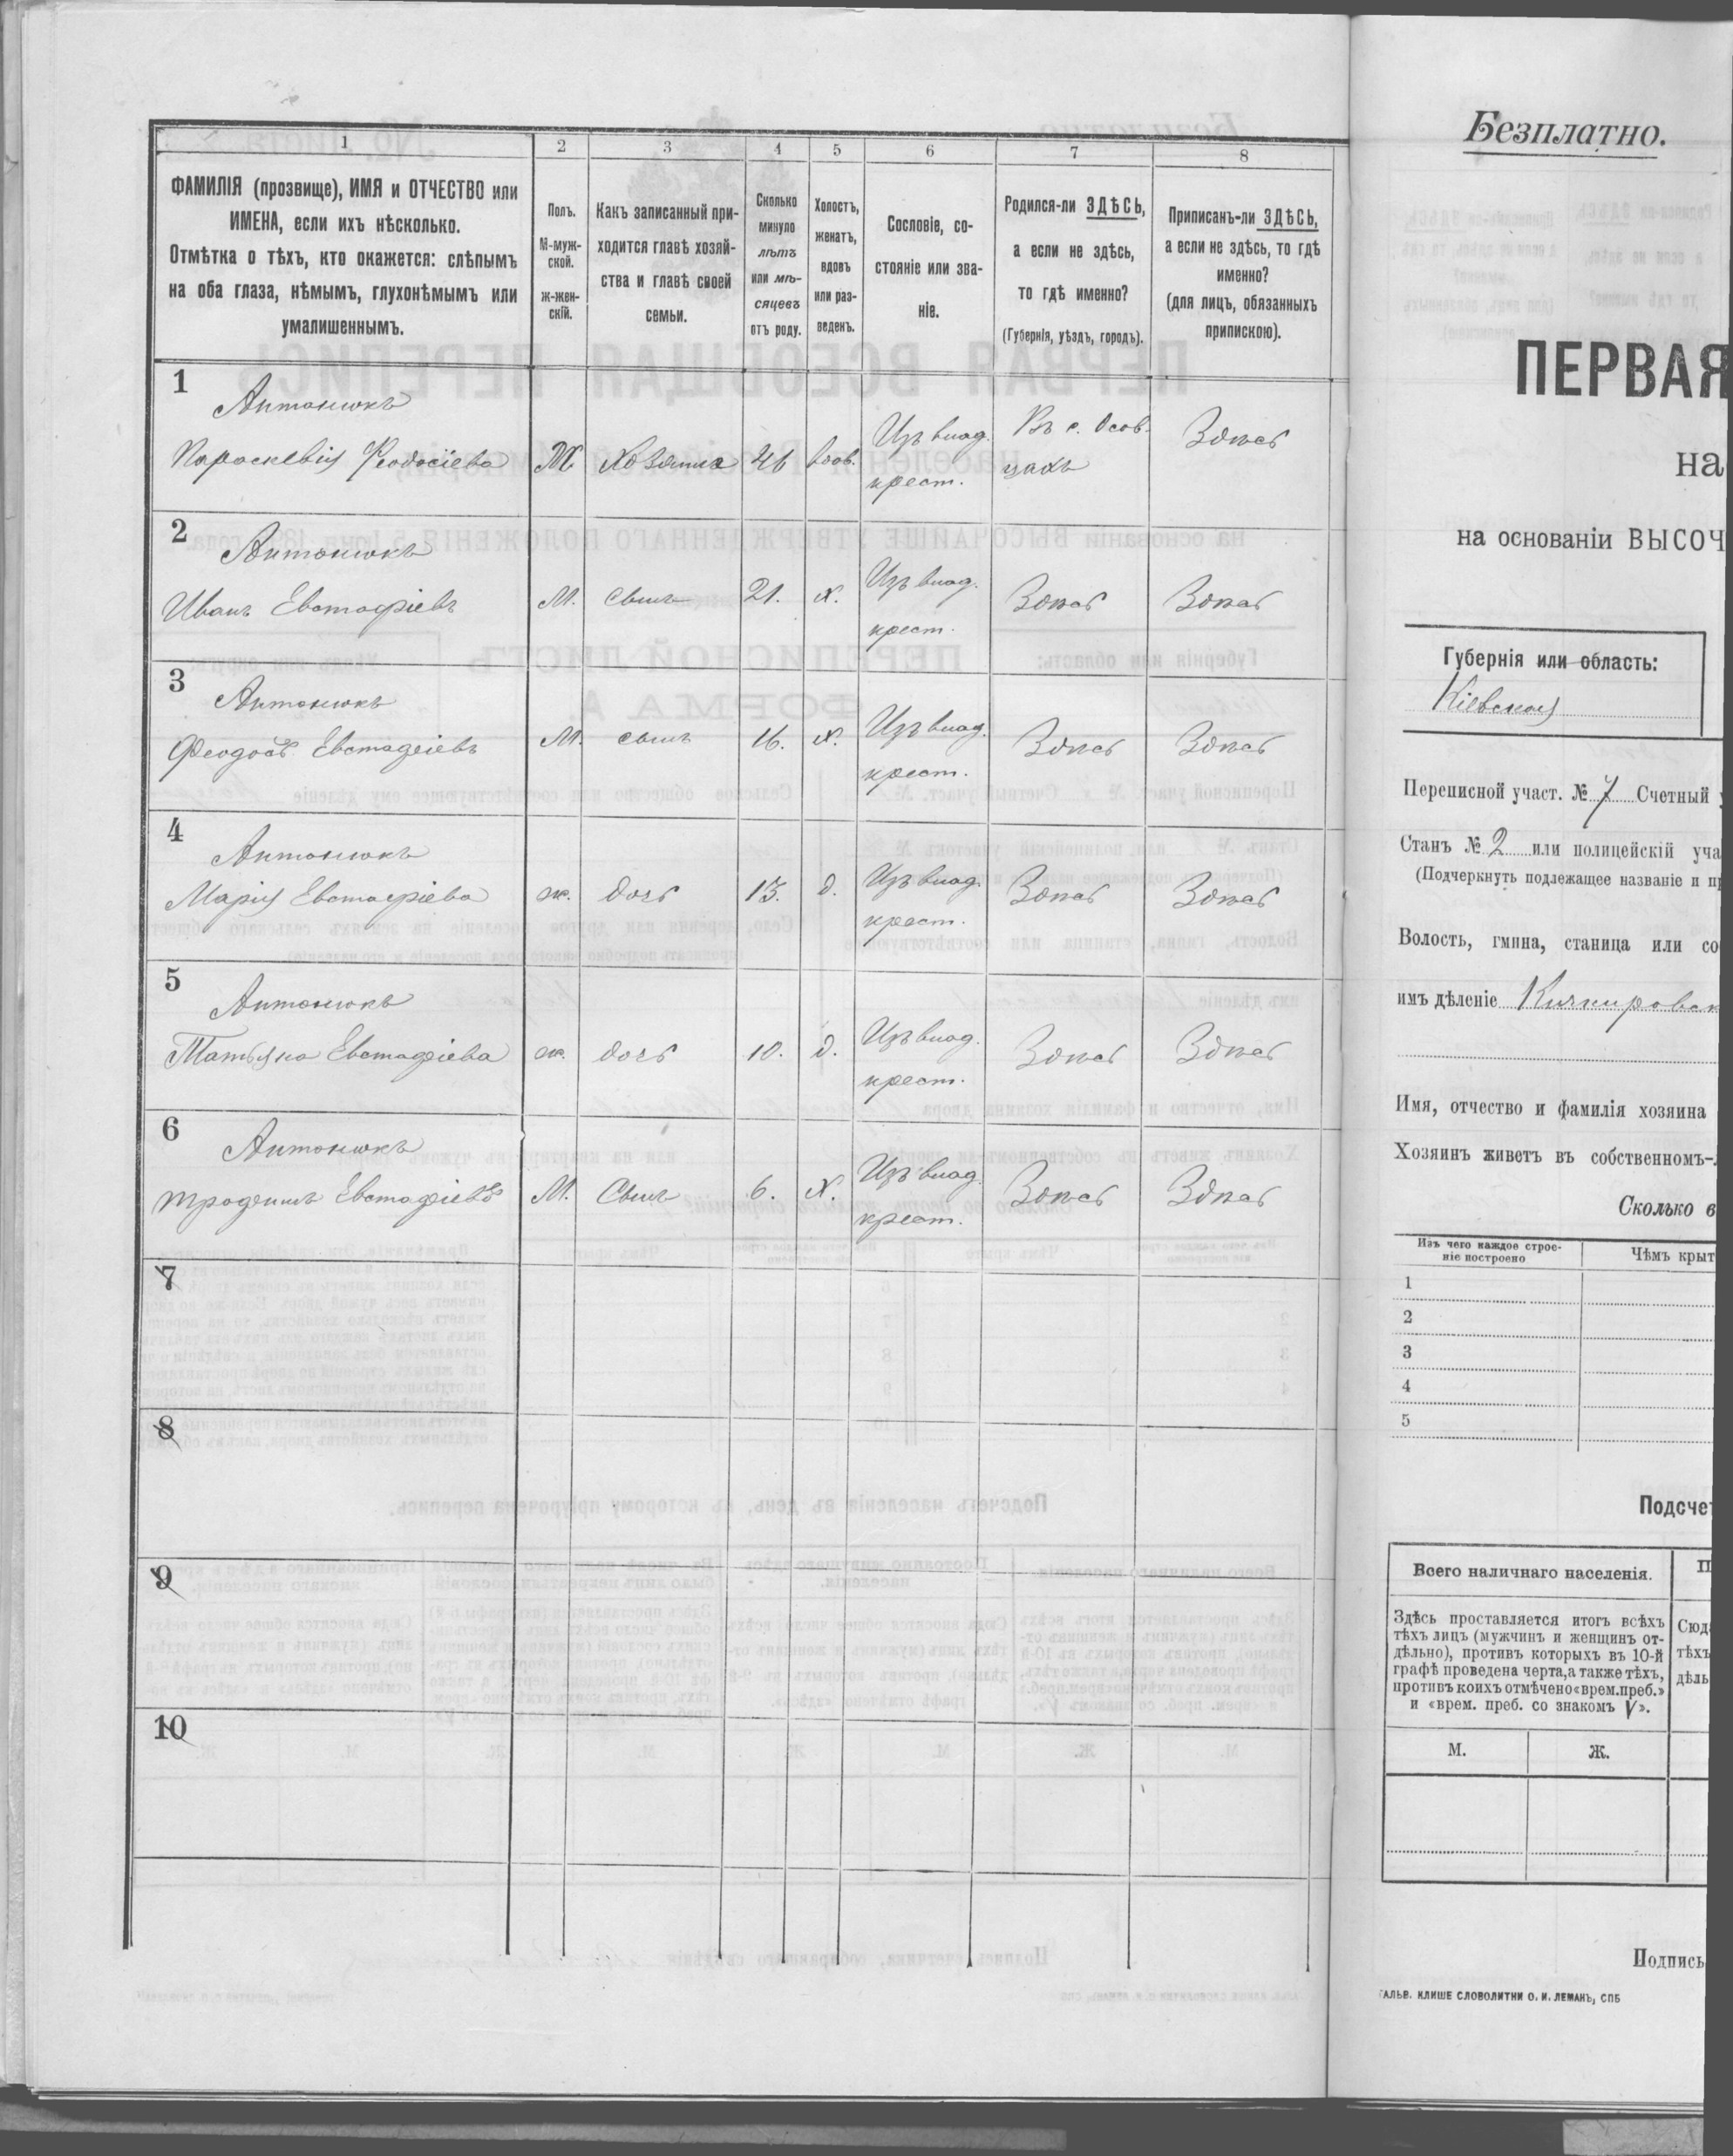 1 2 3 4 5 6 7 8
ФАМИЛІЯ (прозвище), ИМЯ и ОТЧЕСТВО или
ИМЕНА, если ихъ нѣсколько.
Отмѣтка о тѣхъ, кто окажется: слѣпымъ
на оба глаза, нѣмымъ, глухонѣмымъ или
умалишеннымъ.
Полъ.
М-муж-
ской.
ж-жен-
скій.
Какъ записанный при-
ходится главѣ хозяй-
ства и главѣ своей
семьи.
Сколько
минуло
лѣтъ
или мѣ-
сяцевъ
отъ роду.
Холостъ,
женатъ,
вдовъ
или раз-
веденъ.
Сословіе, со-
стояніе или зва-
ніе.
Родился-ли ЗДѢСЬ,
а если не здѣсь,
то гдѣ именно?
(Губернія, уѣздъ, городъ).
Приписанъ-ли ЗДѢСЬ,
а если не здѣсь, то гдѣ
именно?
(для лицъ, обязанныхъ
припискою).
1
Антонюкъ
Параскевія Феодосіева
Ж
Хозяинъ
46
вдов.
Изъ влад.
крест.
Въ с. Осов-
цахъ
Здѣсь
2
Антонюкъ
Иванъ Евстафіевъ
М.
сынъ
21.
х.
Изъ влад.
крест.
Здѣсь
Здѣсь
3
Антонюкъ
Феодосъ Евстафіевъ
М.
сынъ
16.
х.
Изъ влад.
крест.
Здѣсь
Здѣсь
4
Антонюкъ
Марія Евстафіева
ж.
дочь
13.
д.
Изъ влад.
крест.
Здѣсь
Здѣсь
5
Антонюкъ
Татьяна Евстафіева
ж.
дочь
10.
д.
Изъ влад.
крест.
Здѣсь
Здѣсь
6
Антонюкъ
Евстафіевъ
М.
Сынъ
6.
х.
Изъ влад.
крест.
Здѣсь
Здѣсь
7
8
9
10
Безплатно.
ПЕРВАЯ
на
на основаніи ВЫСОЧ
Губернія или область:
Кіевская
Переписной участ. № 7 Счетный
Станъ № 2 или полицейскій уча
(Подчеркнуть подлежащее названіе и пр
Волость, гмина, станица или со
имъ дѣленіе Кичкировск
Имя, отчество и фамилія хозяина
Хозяинъ живетъ въ собственномъ-л
Сколько в
Изъ чего каждое строе-
ніе построено
Чѣмъ крыт
1
2
3
4
5
Подсчет
Всего наличнаго населенія.
П
Здѣсь проставляется итогъ всѣхъ
тѣхъ лицъ (мужчинъ и женщинъ от-
дѣльно), противъ которыхъ въ 10-й
графѣ проведена черта, а также тѣхъ,
противъ коихъ отмѣчено «врем. преб.»
и «врем. преб. со знакомъ V».
Сюда
тѣхъ
дѣль
М.
Ж.
Подпись
ГАЛЬВ. КЛИШЕ СЛОВОЛИТНИ О. И. ЛЕМАНЪ, СПБ